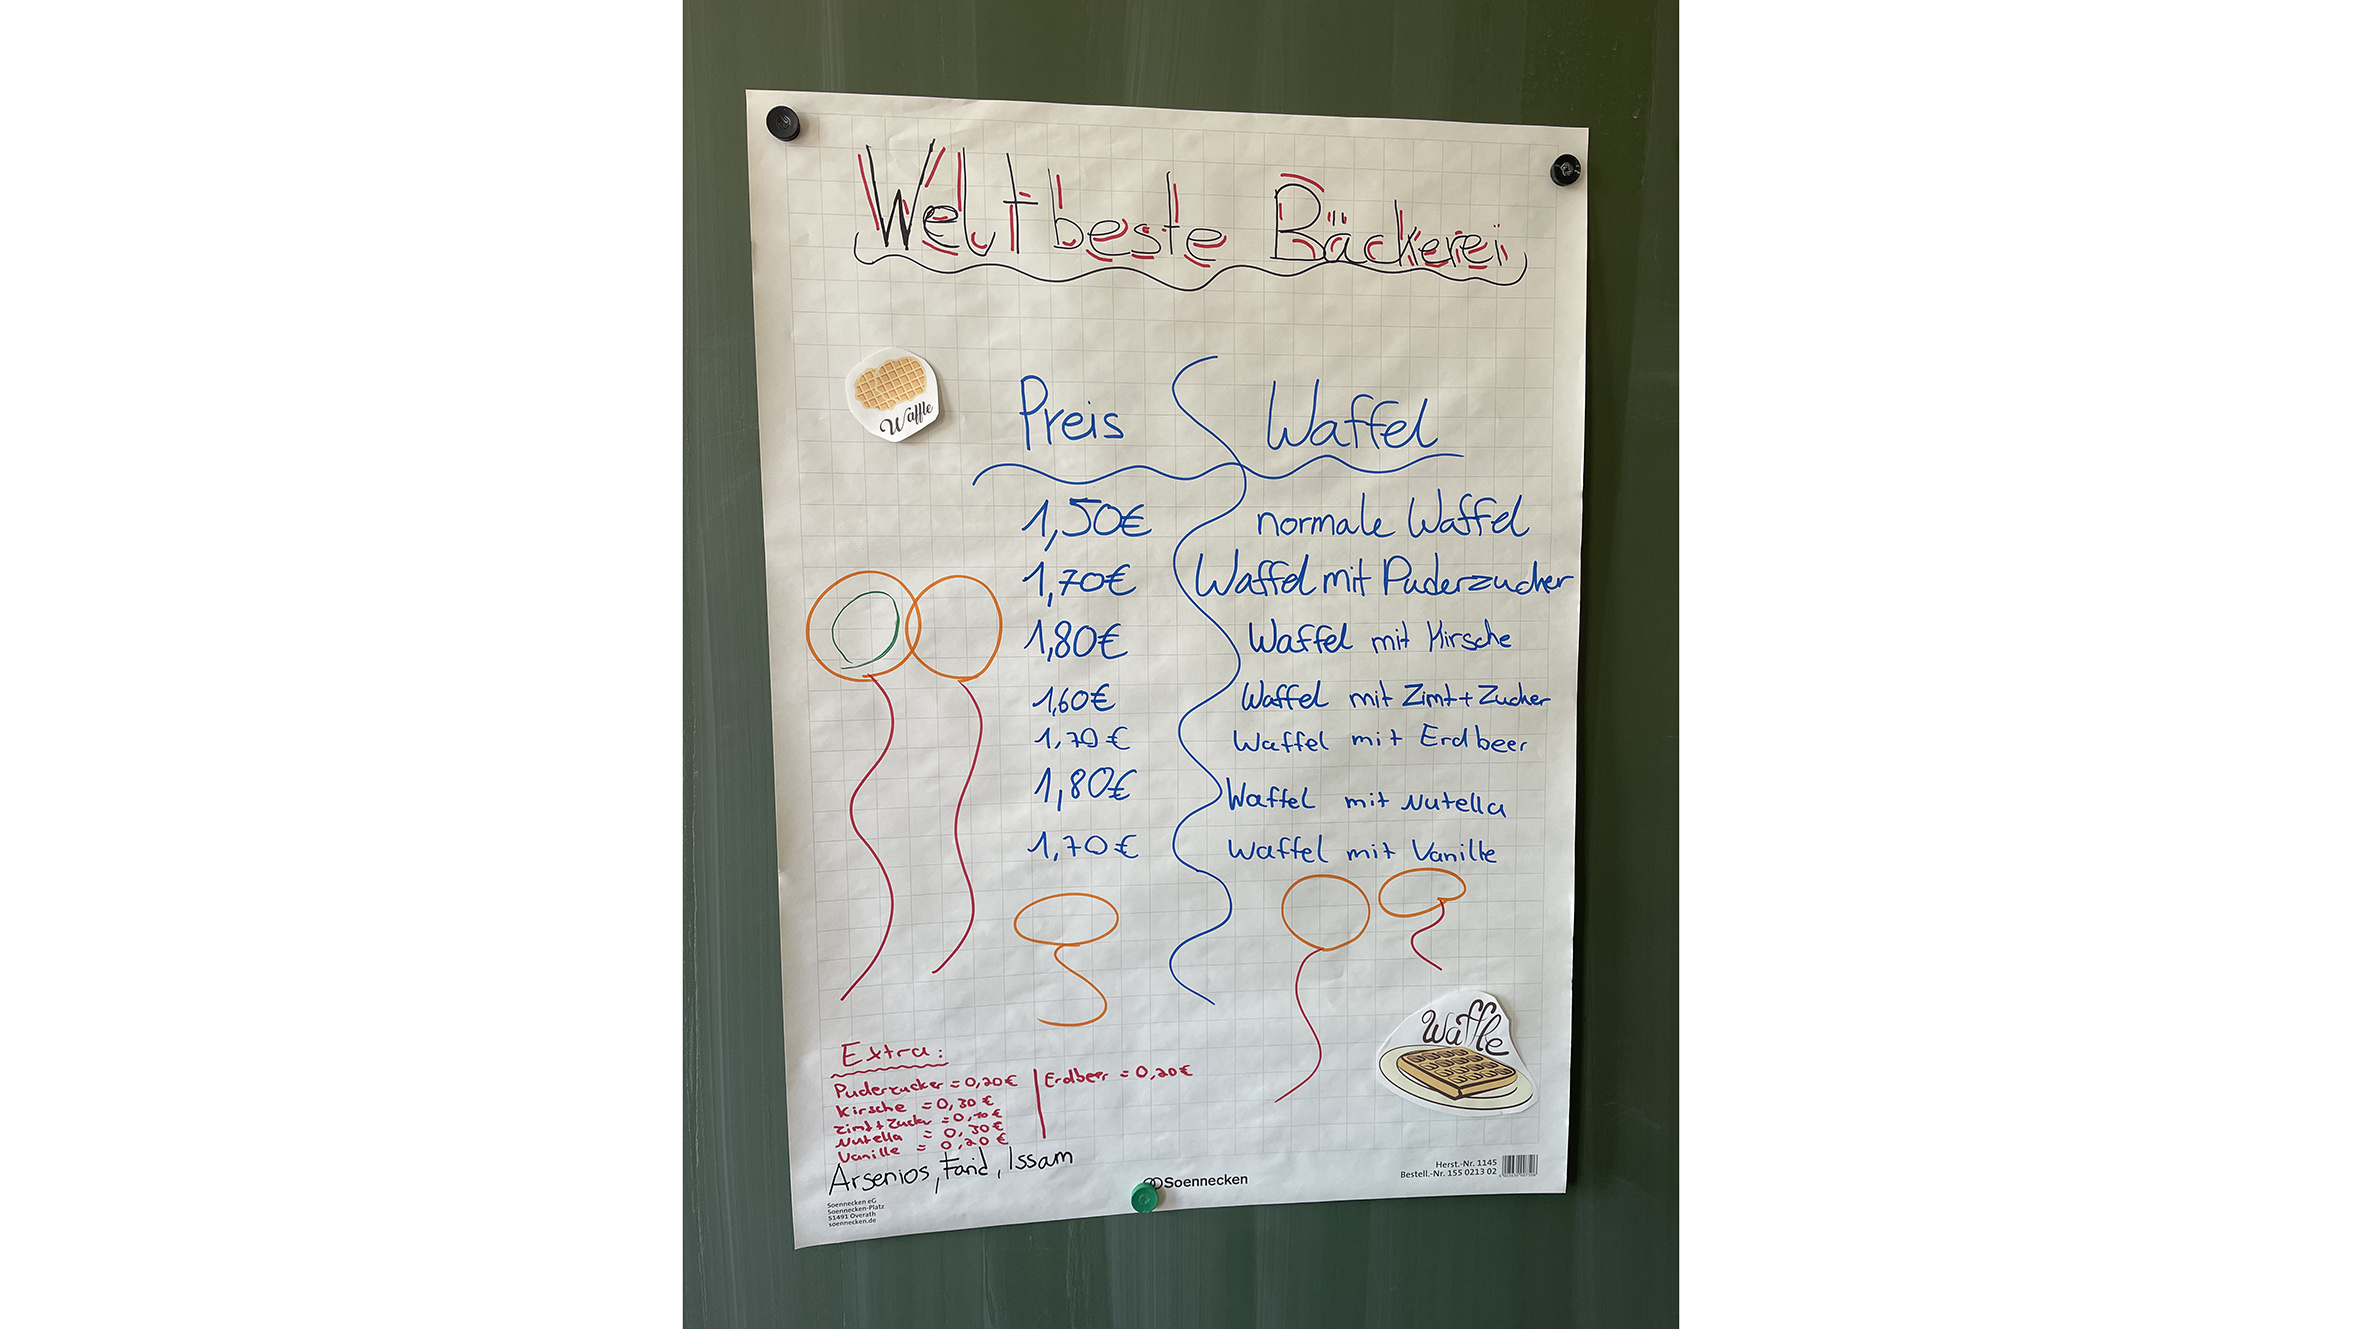 Weltbeste Bäckerei
Waffle
Preis Waffel
1,50€ normale Waffel
1,70€ Waffel mit Puderzucker
1,80€ Waffel mit Kirsche
1,60€ Waffel mit Zimt+Zucker
1,70€ Waffel mit Erdbeer
1,80€ Waffel mit Nutella
1,70€ Waffel mit Vanille
Waffle
Extra:
Puderzucker = 0,20€
Kirsche = 0,30€
Zimt+Zucker = 0,10€
Nutella = 0,30€
Vanille = 0,20€
Erdbeer = 0,20€
Arsenios, Farid, Issam
Soennecken eG
Soennecken-Platz
51491 Overath
soennecken.de
Soennecken
Herst.-Nr. 1145
Bestell.-Nr. 155 0213 02